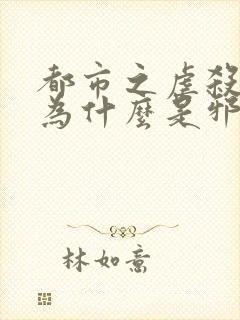 都市之虐殺
為什麼是邪
林如意